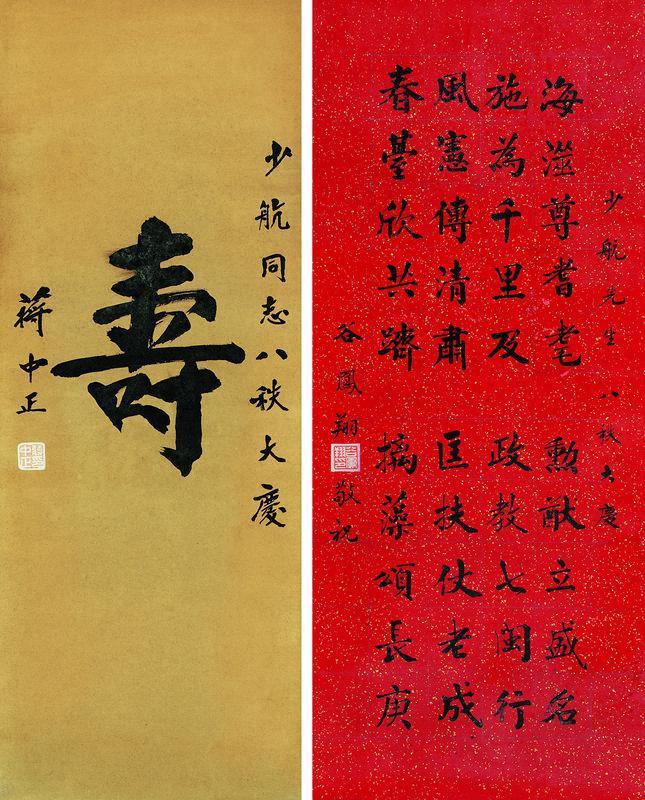 少航同志八秩大慶
壽
蔣中正
少航先生 八秩大慶
海澨尊耆耄 勳猷立盛名
施為千里及 政教七閩行
風憲傳清肅 匡扶仗老成
春臺欣共躋 摛藻頌長庚
谷鳳翔 敬祝